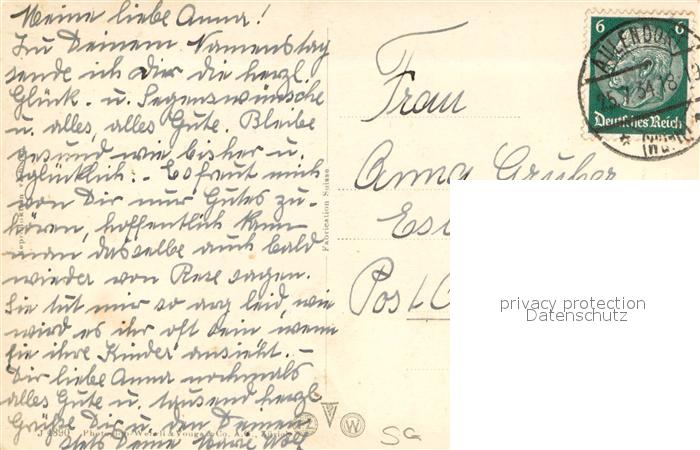 Meine liebe Anna!
Zu Deinem Namenstag
sende ich Dir die herzl.
Glück- u. Segenswünsche
u. alles, alles Gute. Bleibe
gesund wie bisher u.
glücklich. - Es freut mich
von Dir nur Gutes zu-
hören, hoffentlich kann
man dasselbe auch bald
wieder von Rese sagen.
Sie tut mir so arg leid, wie
wird es ihr oft sein wenn
sie ihre Kinder ansieht. -
Dir liebe Anna nochmals
alles Gute u. tausend herzl.
Grüße Dir u. den Deinen
stets Deine
J 4890
Fabrication Suisse
Frau
Anna Gruber
Post
6 6
Deutsches Reich
AULENDORF
privacy protection
Datenschutz
W
SG